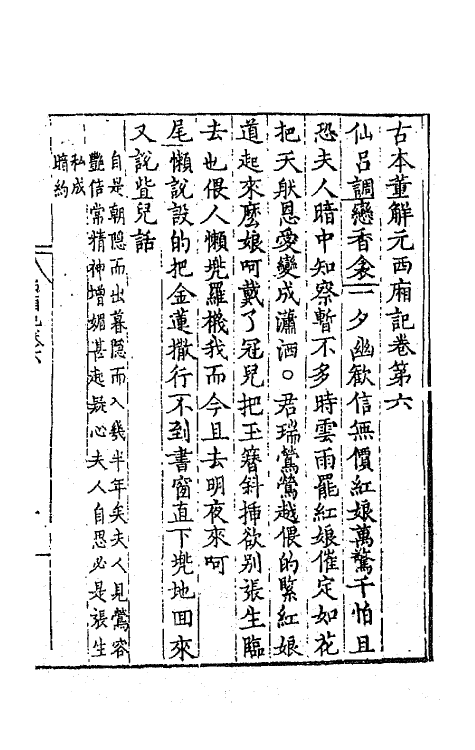 古本董解元西廂記卷第六
仙呂調戀香衾一夕幽歡信無價紅娘萬驚千怕且
恐夫人暗中知察暫不多時雲雨罷紅娘催定如花
把天般恩愛變成瀟洒○君瑞鶯鶯越偎的緊紅娘
道起來麼娘呵戴了冠兒把玉簪斜插欲別張生臨
去也偎人懶兜羅襪我而今且去明夜來呵
尾懶說設的把金蓮撒行不到書窗直下兜地回來
又說些兒話
自是朝隱而出暮隱而入幾半年矣夫人見鶯容
豔倍常精神增媚甚疑心夫人自思必是張生
私成
暗約